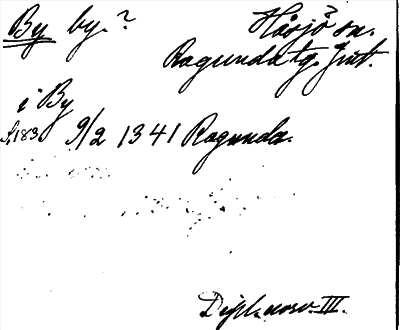 By by.? Håsjö? sn.
Ragunda tg. Jmt.
i By
s.183 9/2 1341 Ragunda.
Dipl. norv. III.